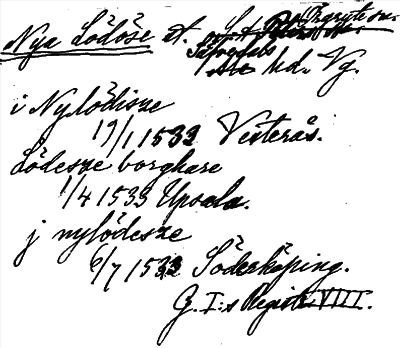 Nya Lödöse st.
Sävedals hd. Vg.
i Nylödisze
19/1 1532 Vesterås.
Lödesze borghare
1/4 1533 Upsala.
j nylödesze
6/7 1532 Söderköping.
G. I:s Registr VIII.